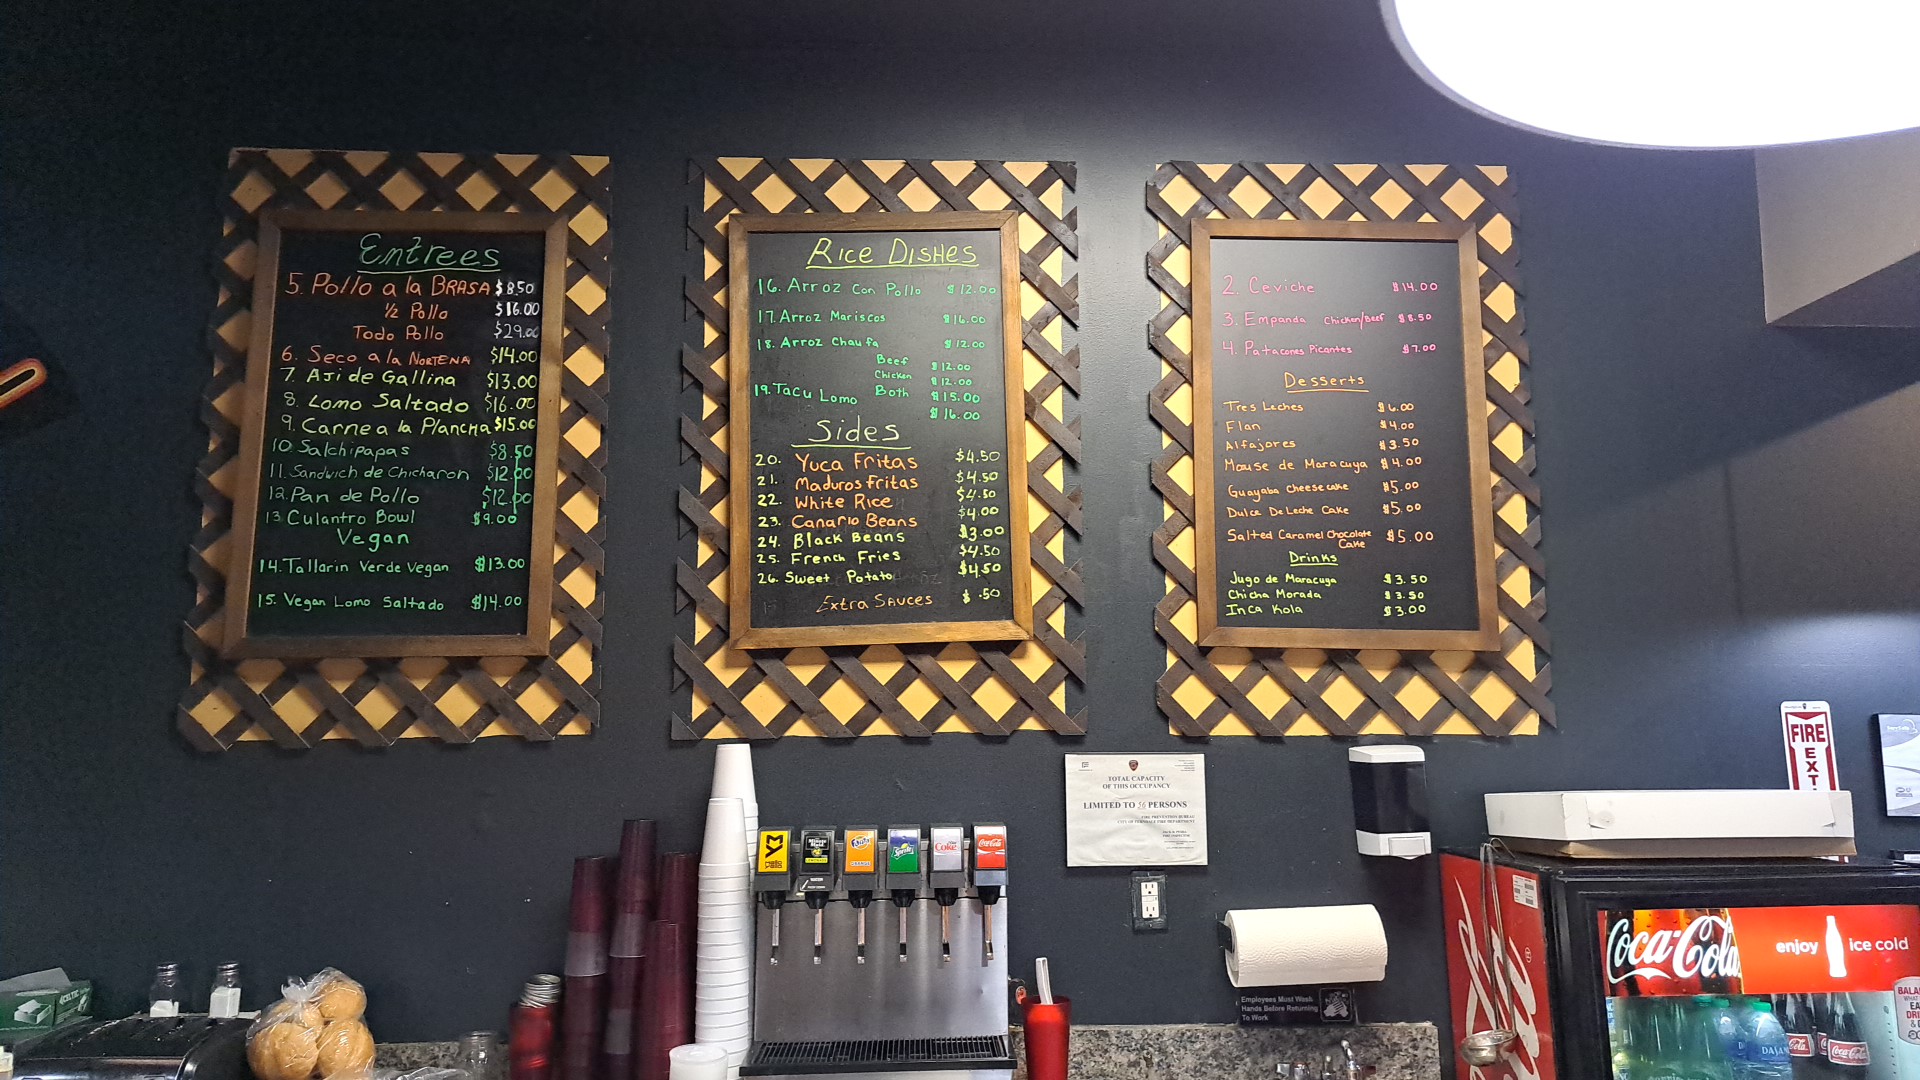 Entrees
5. Pollo a la BRASA $8.50
1/2 Pollo $16.00
Todo Pollo $29.00
6. Seco a la NORTENA $14.00
7. Aji de Gallina $13.00
8. Lomo Saltado $16.00
9. Carne a la Plancha $15.00
10. Salchipapas $8.50
11. Sandwich de Chicharon $12.00
12. Pan de Pollo $12.00
13. Culantro Bowl $9.00
Vegan
14. Tallarin Verde Vegan $13.00
15. Vegan Lomo Saltado $14.00
Rice Dishes
16. Arroz Con Pollo $12.00
17. Arroz Mariscos $16.00
18. Arroz Chaufa $12.00
Beef $12.00
Chicken $12.00
Both $15.00
19. Tacu Lomo $16.00
Sides
20. Yuca Fritas $4.50
21. Maduros Fritas $4.50
22. White Rice $4.50
23. Canario Beans $4.00
24. Black Beans $3.00
25. French Fries $4.50
26. Sweet Potato $4.50
Extra Sauces $.50
2. Ceviche $14.00
3. Empanda Chicken/Beef $8.50
4. Patacones Picantes $7.00
Desserts
Tres Leches $6.00
Flan $4.00
Alfajores $3.50
Mouse de Maracuya $4.00
Guayaba cheesecake $5.00
Dulce De Leche Cake $5.00
Salted Caramel Chocolate Cake $5.00
Drinks
Jugo de Maracuya $3.50
Chicha Morada $3.50
Inca Kola $3.00
FIRE
EXT
TOTAL CAPACITY
OF THIS OCCUPANCY
LIMITED TO 56 PERSONS
FIRE PREVENTION BUREAU
mello yello
Fanta
ORANGE
Sprite
Coke
Coca-Cola
Employees Must Wash
Hands Before Returning
To Work
Coca-Cola
enjoy ice cold
DASANI
Coca-Cola